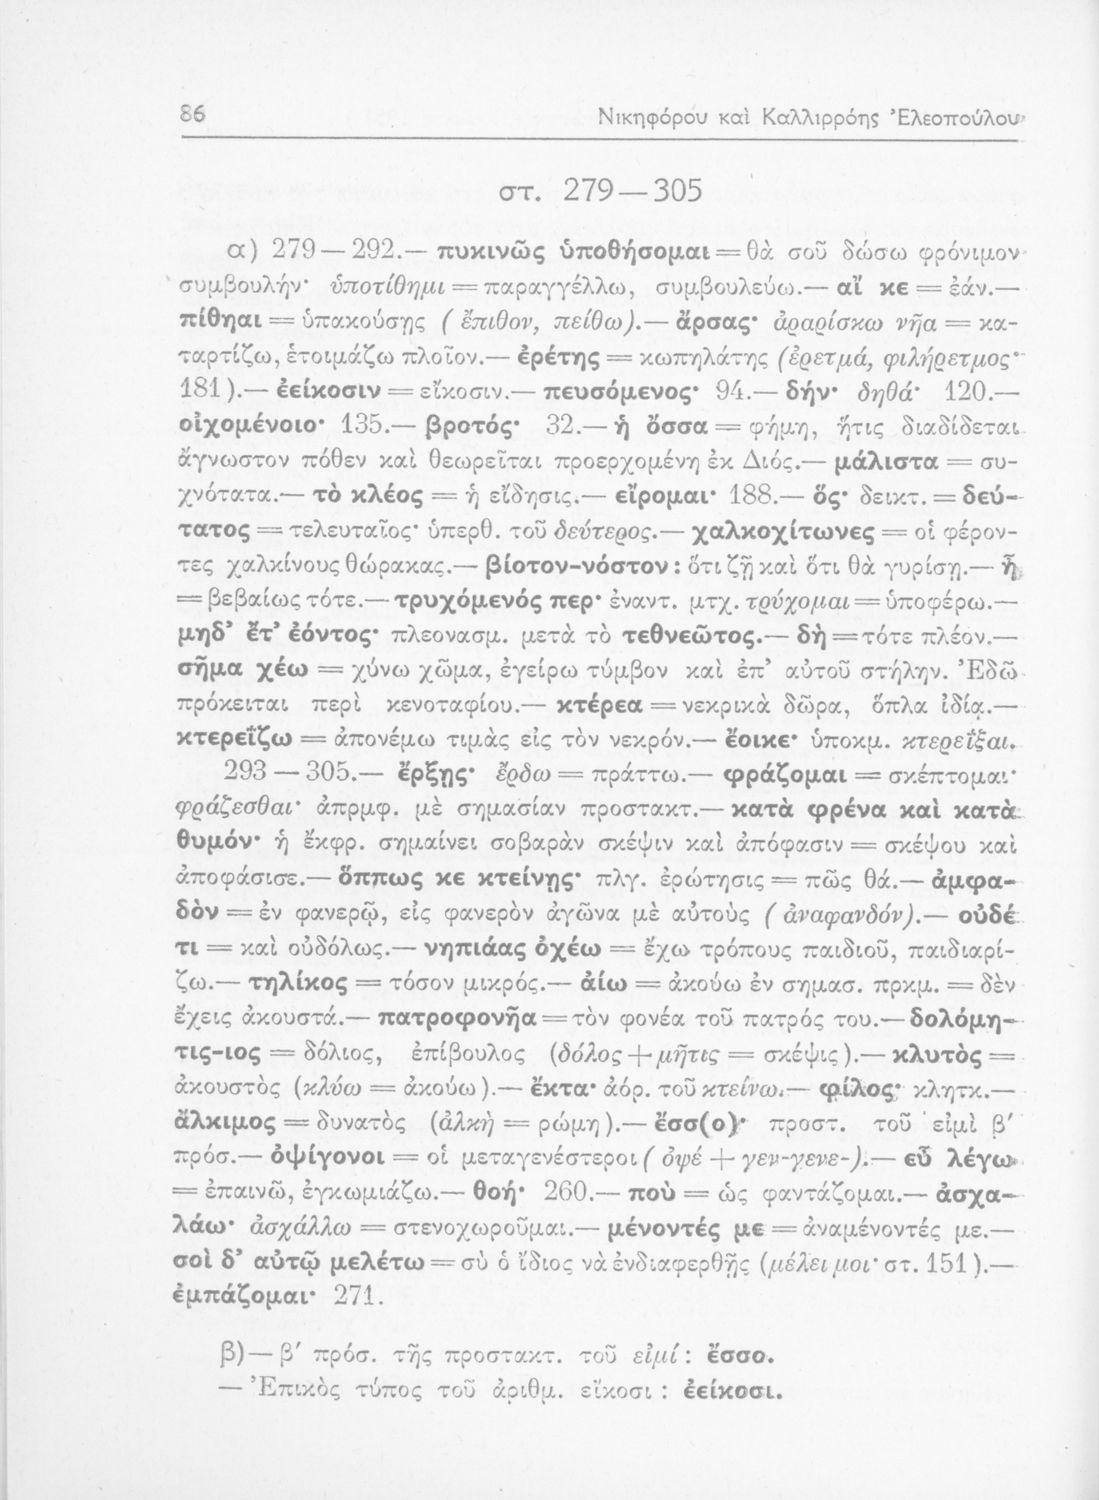 86
Νικηφόρου καὶ Καλλιρρόης Ἐλεοπούλου
στ. 279 — 305
α) 279 — 292.— πυκινῶς ὑποθήσομαι = θὰ σοῦ δώσω φρόνιμον
συμβουλήν· ὑποτίθημι = παραγγέλλω, συμβουλεύω.— αἴ κε = ἐάν.—
πίθηαι = ὑπακούσῃς ( ἔπιθον, πείθω).— ἄρσας· ἀραρίσκω νῆα = κα-
ταρτίζω, ἑτοιμάζω πλοῖον.— ἐρέτης = κωπηλάτης (ἐρετμά, φιλήρετμος·
181).— ἐείκοσιν = εἴκοσιν.— πευσόμενος· 94.— δήν· δηθά· 120.—
οἰχομένοιο· 135.— βροτός· 32.— ἡ ὄσσα = φήμη, ἥτις διαδίδεται
ἄγνωστον πόθεν καὶ θεωρεῖται προερχομένη ἐκ Διός.— μάλιστα = συ-
χνότατα.— τὸ κλέος = ἡ εἴδησις.— εἴρομαι· 188.— ὅς· δεικτ. = δεύ-
τατος = τελευταῖος· ὑπερθ. τοῦ δεύτερος.— χαλκοχίτωνες = οἱ φέρον-
τες χαλκίνους θώρακας.— βίοτον-νόστον : ὅτι ζῇ καὶ ὅτι θὰ γυρίσῃ.— ἦ
= βεβαίως τότε.— τρυχόμενός περ· ἐναντ. μτχ. τρύχομαι = ὑποφέρω.—
μηδ’ ἔτ’ ἐόντος· πλεονασμ. μετὰ τὸ τεθνεῶτος.— δὴ = τότε πλέον.—
σῆμα χέω = χύνω χῶμα, ἐγείρω τύμβον καὶ ἐπ’ αὐτοῦ στήλην. Ἐδῶ
πρόκειται περὶ κενοταφίου.— κτέρεα = νεκρικὰ δῶρα, ὅπλα ἰδίᾳ.—
κτερεΐζω = ἀπονέμω τιμὰς εἰς τὸν νεκρόν.— ἔοικε· ὑποκμ. κτερεΐξαι.
293 — 305.— ἔρξῃς· ἔρδω = πράττω.— φράζομαι = σκέπτομαι·
φράζεσθαι· ἀπρμφ. μὲ σημασίαν προστακτ.— κατὰ φρένα καὶ κατὰ
θυμόν· ἡ ἔκφρ. σημαίνει σοβαρὰν σκέψιν καὶ ἀπόφασιν = σκέψου καὶ
ἀποφάσισε.— ὅππως κε κτείνῃς· πλγ. ἐρώτησις = πῶς θά.— ἀμφα-
δὸν = ἐν φανερῷ, εἰς φανερὸν ἀγῶνα μὲ αὐτοὺς ( ἀναφανδόν).— οὐδέ
τι = καὶ οὐδόλως.— νηπιάας ὀχέω = ἔχω τρόπους παιδιοῦ, παιδιαρί-
ζω.— τηλίκος = τόσον μικρός.— ἀίω = ἀκούω ἐν σημασ. πρκμ. = δὲν
ἔχεις ἀκουστά.— πατροφονῆα = τὸν φονέα τοῦ πατρός του.— δολόμη-
τις-ιος = δόλιος, ἐπίβουλος (δόλος + μῆτις = σκέψις).— κλυτὸς =
ἀκουστὸς (κλύω = ἀκούω).— ἔκτα· ἀόρ. τοῦ κτείνω.— φίλος· κλητκ.—
ἄλκιμος = δυνατὸς (ἀλκὴ = ρώμη).— ἔσσ(ο)· προστ. τοῦ εἰμὶ β′
πρόσ.— ὀψίγονοι = οἱ μεταγενέστεροι ( ὀψέ + γεν-γενε-).— εὖ λέγω
= ἐπαινῶ, ἐγκωμιάζω.— θοή· 260.— ποὺ = ὡς φαντάζομαι.— ἀσχα-
λάω· ἀσχάλλω = στενοχωροῦμαι.— μένοντές με = ἀναμένοντές με.—
σοὶ δ’ αὐτῷ μελέτω = σὺ ὁ ἴδιος νὰ ἐνδιαφερθῇς (μέλει μοι· στ. 151).—
ἐμπάζομαι· 271.
β)— β′ πρόσ. τῆς προστακτ. τοῦ εἰμί : ἔσσο.
— Ἐπικὸς τύπος τοῦ ἀριθμ. εἴκοσι : ἐείκοσι.